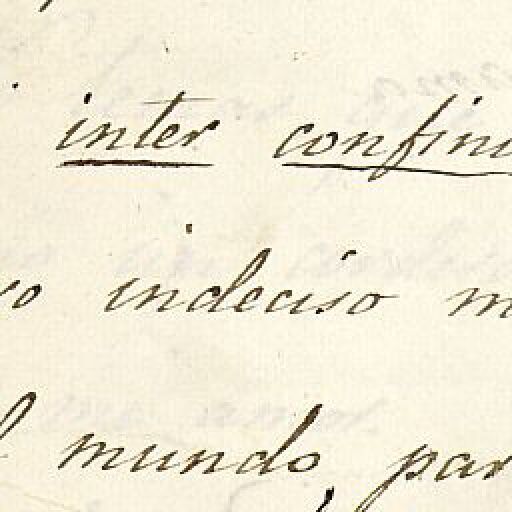 inter confini
so indeciso m
l mundo, par